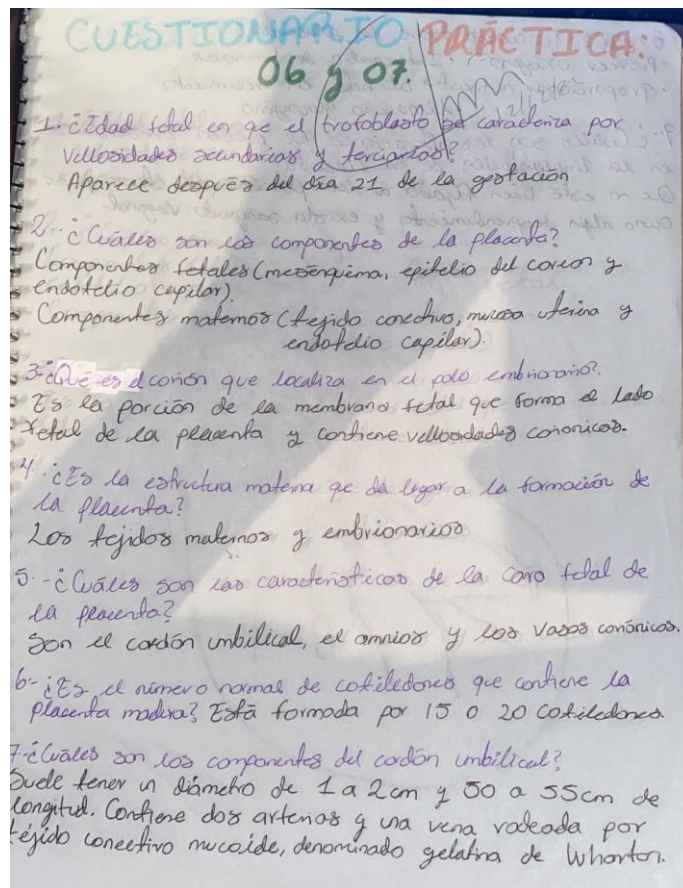 CUESTIONARIO PRÁCTICA:
06 y 07.
1.- ¿Edad fetal en qe el trofoblasto se caracteriza por
vellosidades secundarias y terciarias?
Aparece después del día 21 de la gestación
2.- ¿Cuáles son los componentes de la placenta?
Componentes fetales (mesénquima, epitelio del corion y
endotelio capilar).
Componentes maternos (tejido conectivo, mucosa uterina y
endotelio capilar).
3-¿Qué es el corión que localiza en el polo embrionario?.
Es la porción de la membrana fetal que forma el lado
fetal de la placenta y contiene vellosidades coriónicas.
4.- ¿Es la estructura materna que da lugar a la formación de
la placenta?
Los tejidos maternos y embrionarios
5.- ¿Cuáles son las características de la cara fetal de
la placenta?
Son el cordón umbilical, el amnios y los vasos coriónicos.
6- ¿Es el número normal de cotiledones que contiene la
placenta madura? Está formada por 15 o 20 cotiledones.
7-¿Cuáles son los componentes del cordón umbilical?
Suele tener un diámetro de 1 a 2cm y 50 a 55cm de
longitud. Contiene dos arterias y una vena rodeada por
tejido conectivo mucoide, denominado gelatina de Wharton.